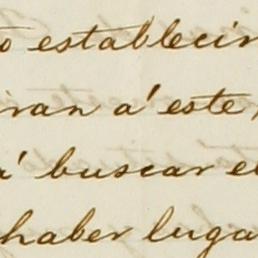 o establecin
iran a' este,
a' buscar el
haber luga